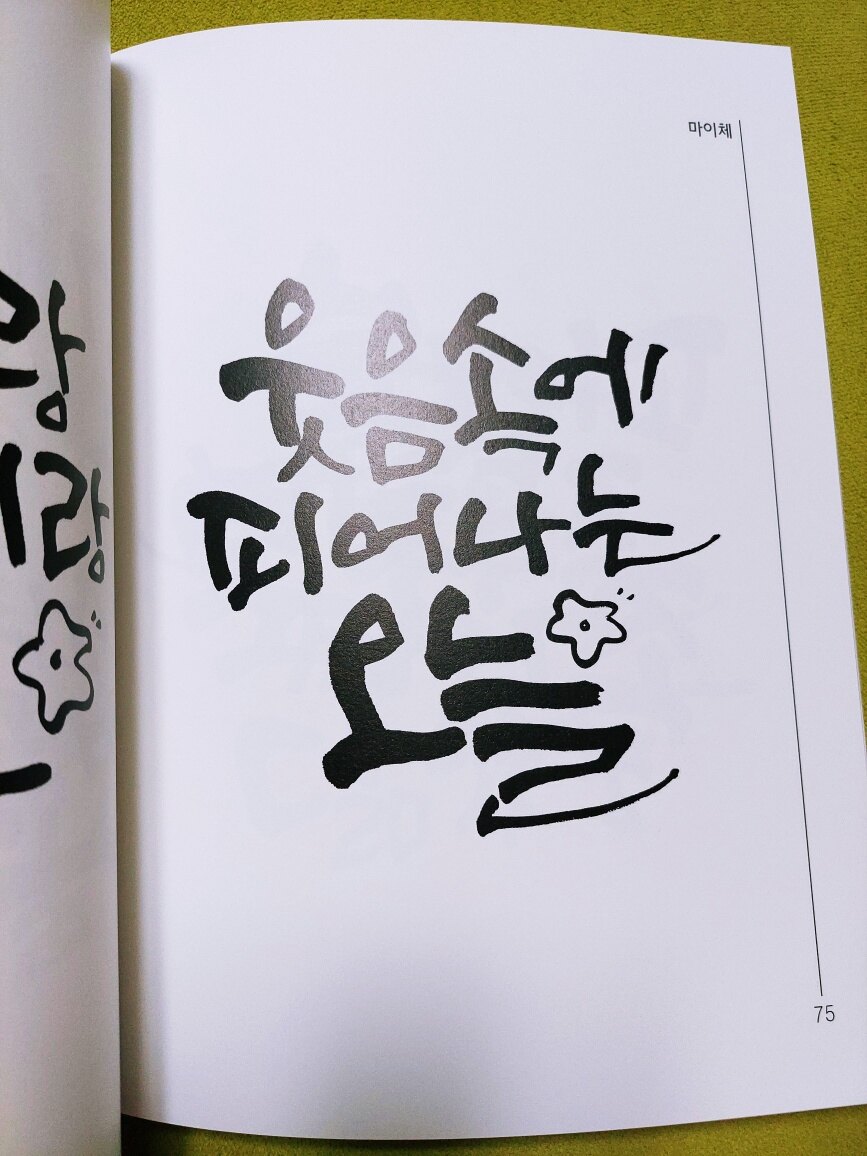 마이체
웃음속에
피어나는
오늘
75